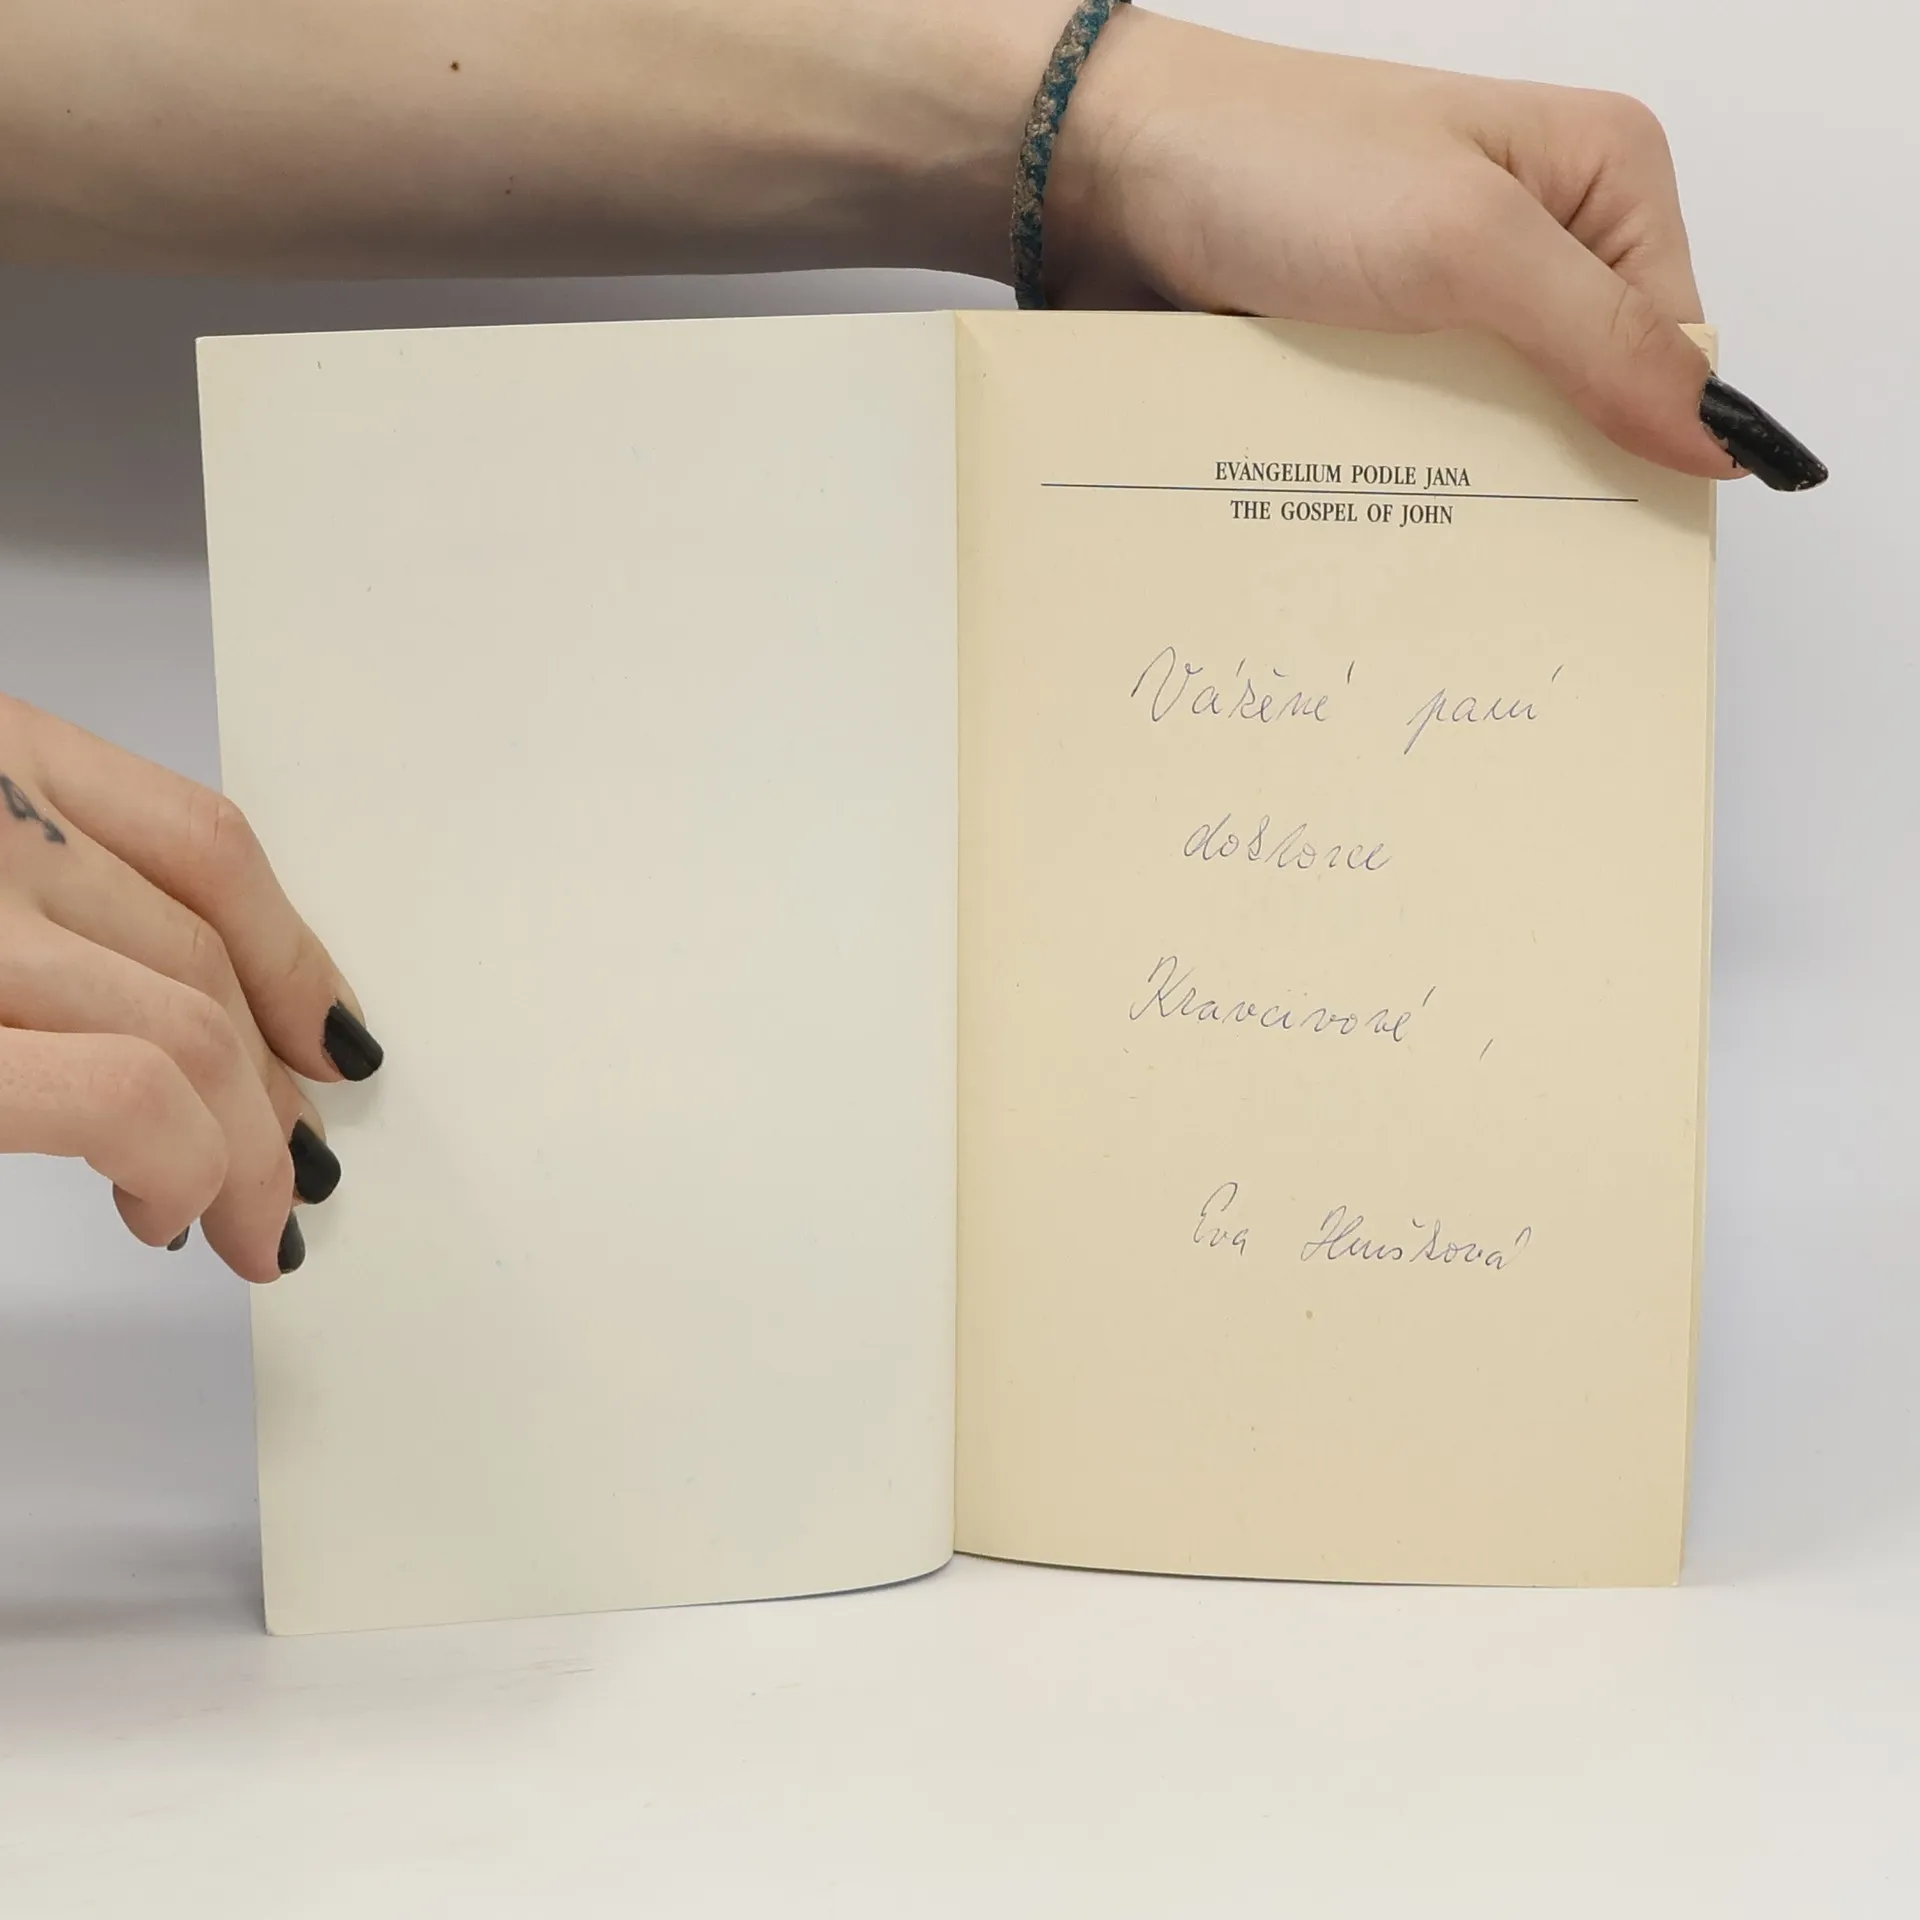 EVANGELIUM PODLE JANA
THE GOSPEL OF JOHN
Vážené paní
doktorce
Kravcivové,
Eva Hušková